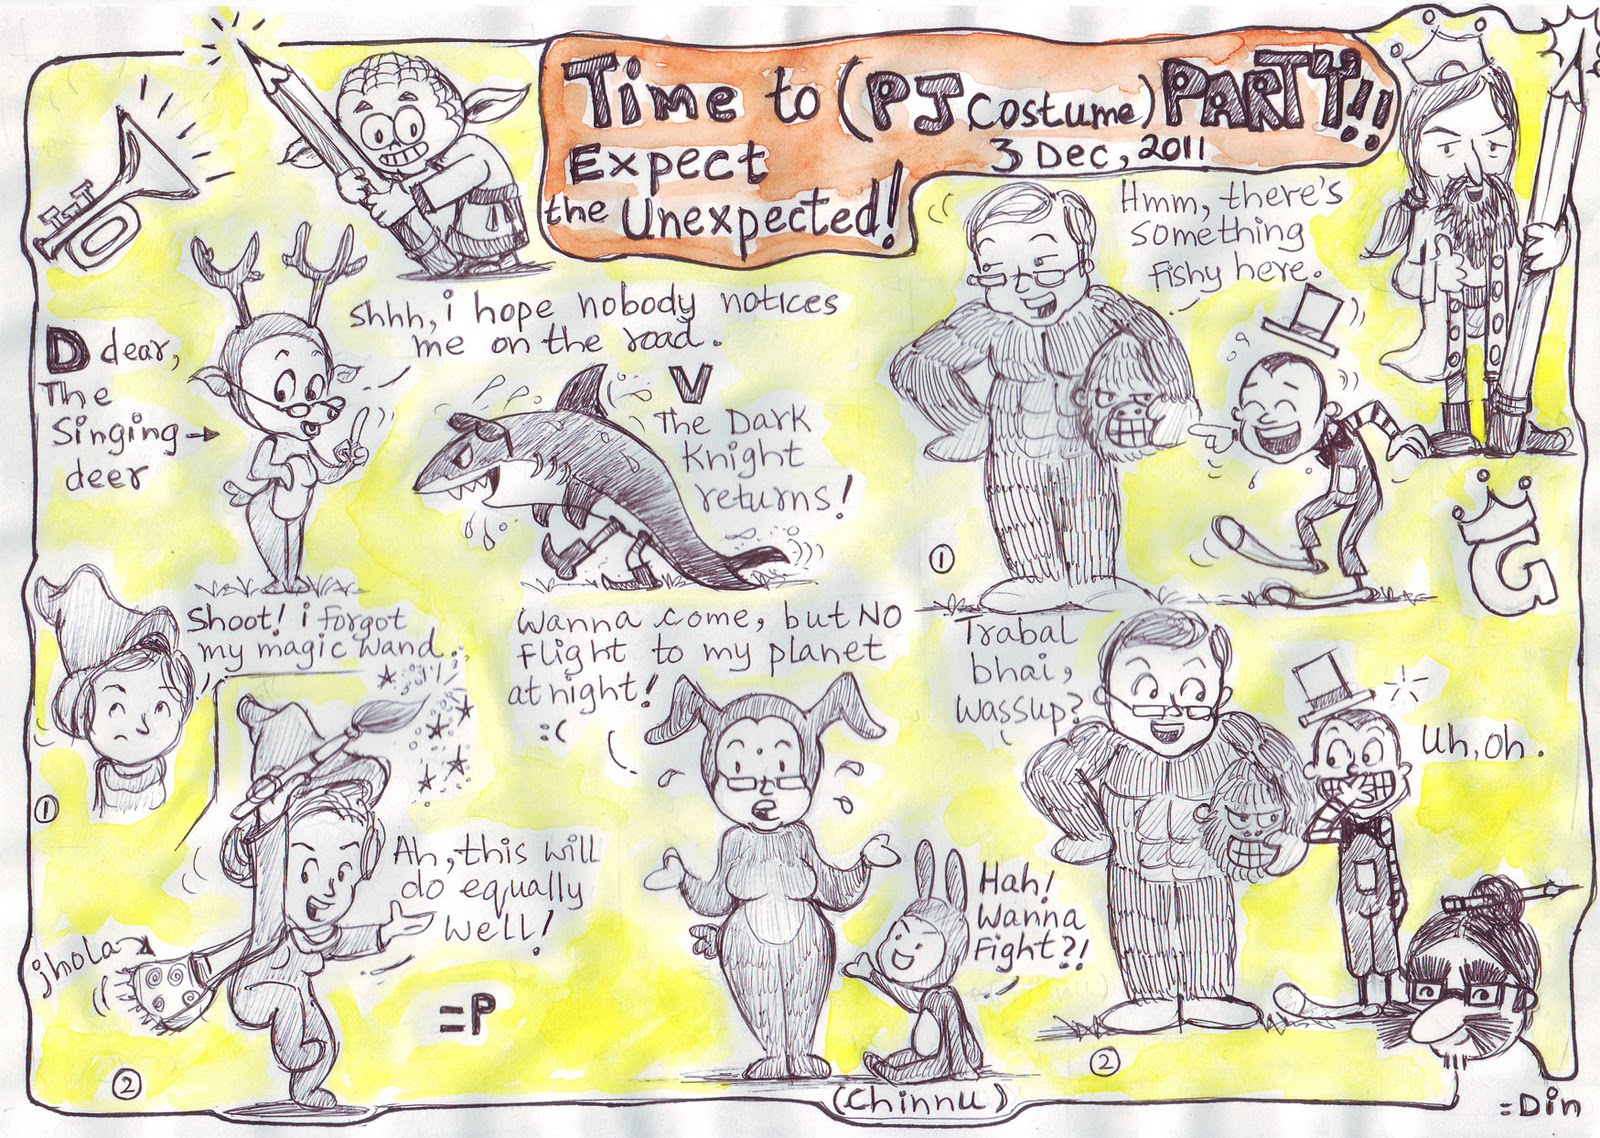 Time to (PJ Costume) PARTY!!
3 Dec, 2011
Expect
the Unexpected!
shhh, i hope nobody notices
me on the road.
D dear,
The
Singing
deer
V
The Dark
Knight
returns!
Hmm, there's
something
fishy here.
1
G
Shoot! i forgot
my magic wand.
1
Ah, this will
do equally
well!
jhola
=P
2
Wanna come, but NO
flight to my planet
at night!
:(
Hah!
Wanna
Fight?!
(Chinnu)
Trabal
bhai,
wassup?
Uh, oh.
2
=Din